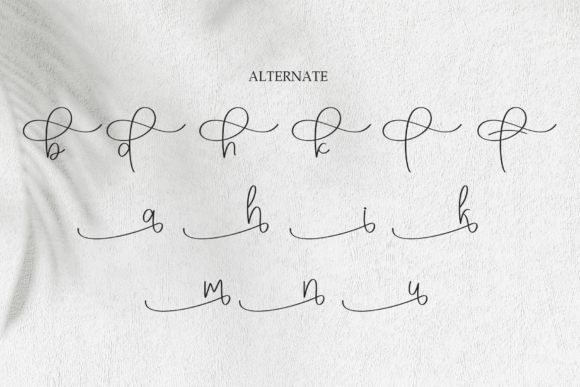 ALTERNATE
b d h k l t
a h i k
m n u